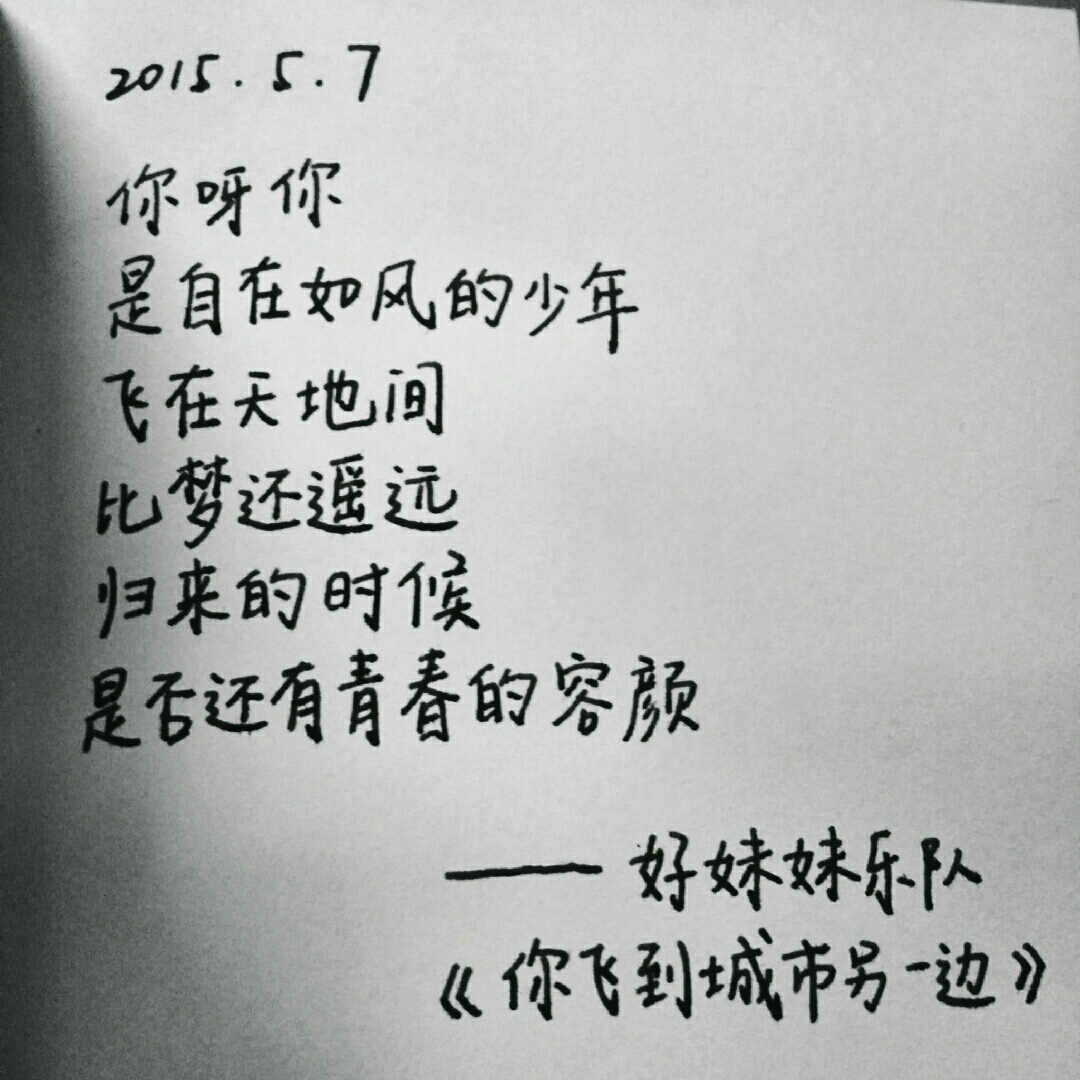 2015.5.7
你呀你
是自在如风的少年
飞在天地间
比梦还遥远
归来的时候
是否还有青春的容颜
——好妹妹乐队
《你飞到城市另一边》